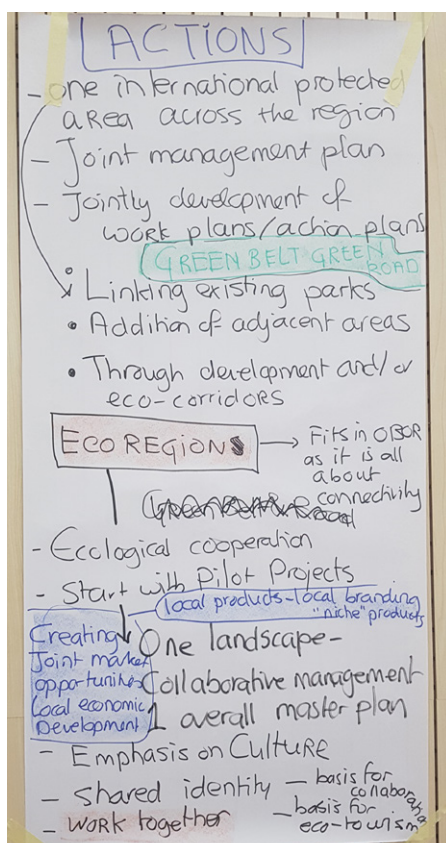 ACTIONS
- one international protected
area across the region
- Joint management plan
- Jointly development of
work plans/action plans
GREEN BELT GREEN
ROAD
• Linking existing parks
• Addition of adjacent areas
• Through development and/or
eco-corridors
ECO REGIONS
→ Fits in OBOR
as it is all
about
connectivity
- Ecological cooperation
- Start with Pilot Projects
local products - local branding
"niche" products
Creating
Joint market
opportunities
Local economic
Development
One landscape -
Collaborative management
1 overall master plan
- Emphasis on Culture
- shared identity
- basis for
- work together
- basis for
eco-tourism